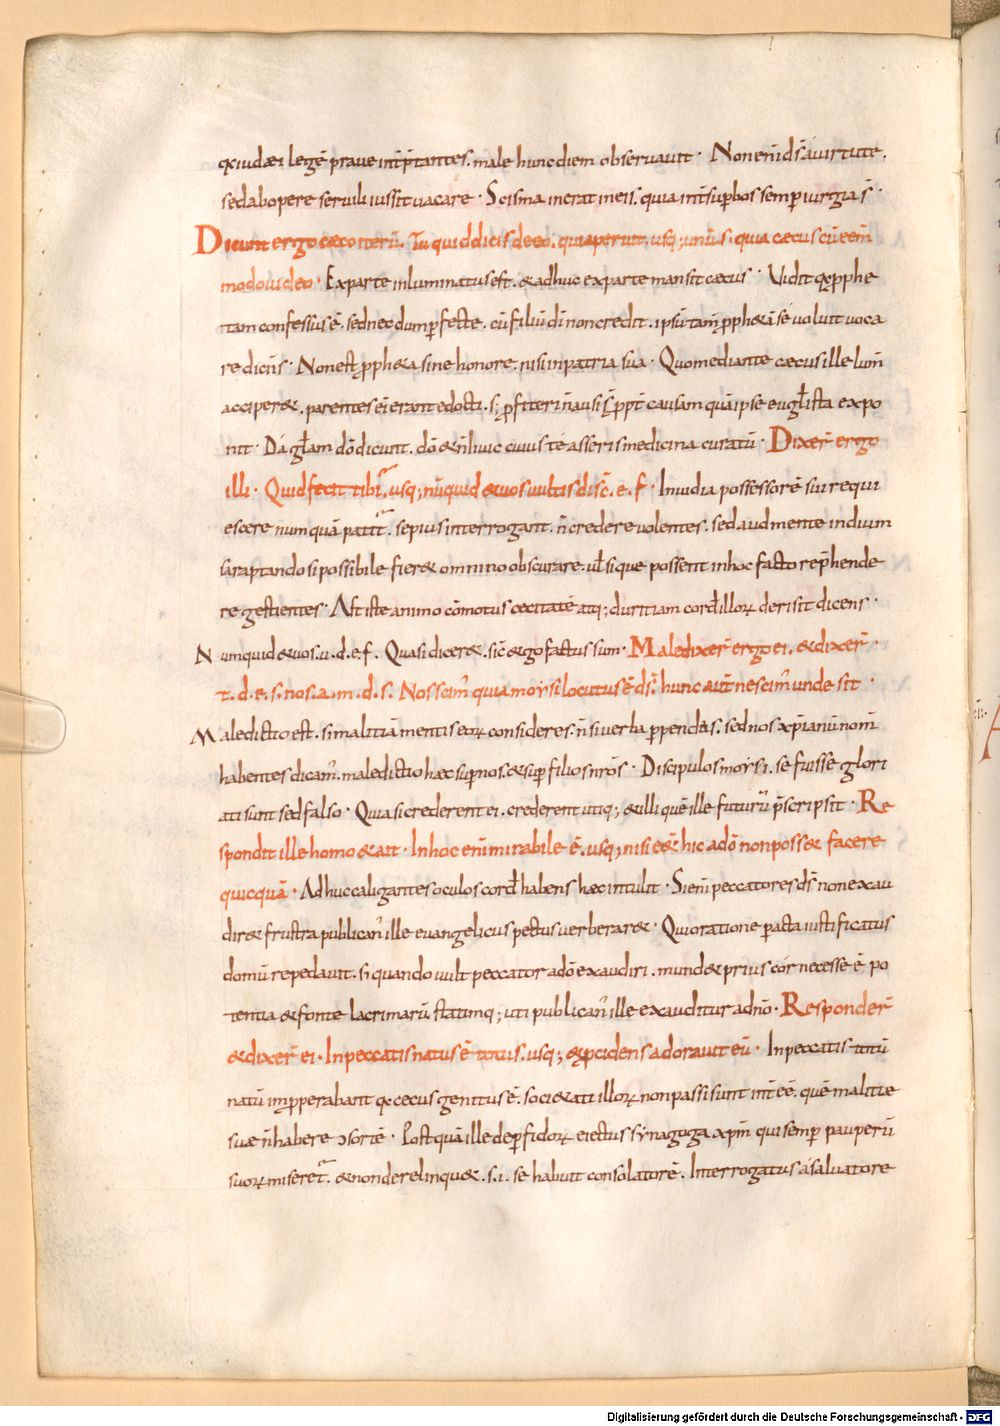 qx iudæi legē praue int̄p̄tantes. male hunc diem obseruauit · Non eni᷒ ds̄ a uirtute.
sed ab opere seruili iussit uacare · Scisma in erat in eis. quia int̄ sup̄bos semp̄ iurgia s̄ ·
Dicunt ergo cæco iterū. Tu quid dicis de eo. quia aperuit, usq; unius. quia cæcus cū eēm
modo uideo · Ex parte inluminatus est. & adhuc ex parte mansit cæcus · Vidit qx p̄phe
tam confessus ē. sed nec dum p̄fecte. cū filiū dī non credit. ipsū tam̄ p̄ph&ā se uoluit uoca
re dicens · Non est p̄ph&a sine honore. nisi in patria sua · Quo mediante cæcus ille lum̄
acciper&. parentes ei erant edocti. s; p̄fiteri n̄ ausi s̄ p̄pt̄ causam quā ipse eugl̄ista expo
nit · Dā gl̄am dō dicunt. dō & n̄ huic cuius te asseris medicina curatū · Dixer̄ ergo
illi · Quid fecit tibi, usq; nūquid & uos uultis disc̄. e. f · Inuidia possessorē sui requi
escere numquā patit. sepius interrogant. n̄ credere uolentes. sed aud mente indium
uaraptando si possibile fier& omnino obscurare. ul̄ si que possent in hoc facto rep̄hende
re gestientes · Ast iste animo cōmotus cecitatē atq; duritiam cord̄ illorꝝ derisit dicens ·
Numquid & uos. u. d. e. f. Quasi dicer&. sic̄ & ego factus sum · Maledixer̄ ergo ei. & dixer̄ ·
t. d. e. s. nos. a. m. d. s. Nos scim᷒ quia moysi locutus ē ds̄. hunc aut̄ nescim᷒ unde sit ·
Maledictio est. si malitiā mentis eorꝝ consideres. n̄ si uerba p̄pendas. sed nos xp̄ianū nom̄
habentes dicam᷒. maledictio hæc sup̄ nos. & sup̄ filios nr̄os · Discipulos moysi. se fuisse glori
ati sunt sed falso · Quia si crederent ei. crederent utiq; & illi quē ille futurū p̄scripsit · Re
spondit ille homo & ait · In hoc eni᷒ mirabile ē. usq; nisi ēē& hic a dō non poss& facere
quicquā · Adhuc caligantes oculos cord̄ habens hæc intulit · Si eni᷒ peccatores ds̄ non exau
dir& frustra publican᷒ ille euangelicus pectus uerberar& · Qui oratione p̄acta iustificatus
domū repedauit. s; quando uult peccator a dō exaudiri. mund& prius cor necesse ē po
tentia & fonte lacrimarū statimq; uti publican᷒ ille exauditur a dn̄o · Responder̄
& dixer̄ ei · In peccatis natus ē totus. usq; & p̄cidens adorauit eū · In peccatis totū
natū imp̄perabant qx cecus genitus ē. soci&ati illorꝝ non passi sunt int̄ eē. quē malitiæ
suæ n̄ habere ɔsortē · Postquā ille de p̄fidorꝝ eiectus synagoga. xp̄m qui semp̄ pauperū
suorꝝ miseret. & non derelinqu&. s. i. se habuit consolatorē. Interrogatus a saluatore
Digitalisierung gefördert durch die Deutsche Forschungsgemeinschaft - DFG